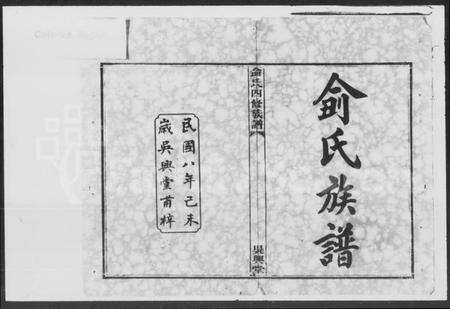 俞氏族譜
俞氏四修族譜
吳興堂
民國八年己未
歲吳興堂甫梓